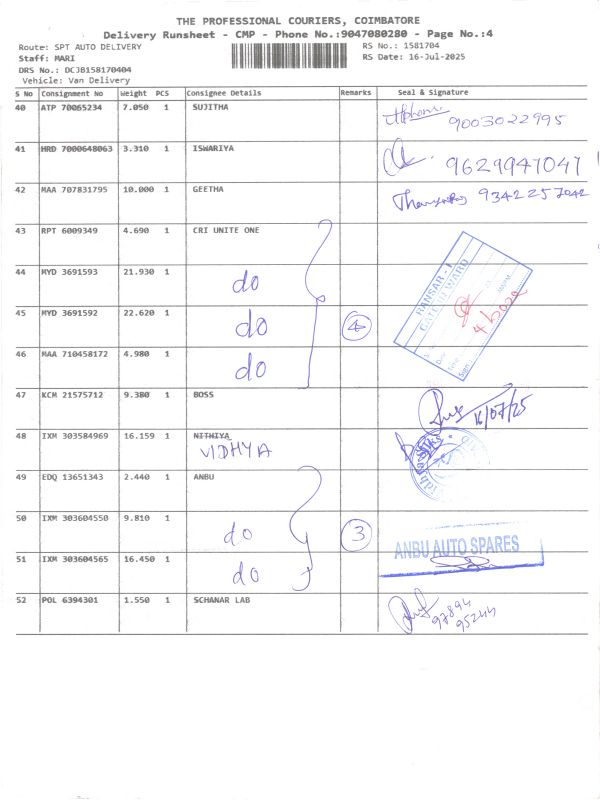 THE PROFESSIONAL COURIERS, COIMBATORE
Delivery Runsheet - CMP - Phone No.:9047080280 - Page No.:4
Route: SPT AUTO DELIVERY RS No.: 1581704
Staff: MARI RS Date: 16-Jul-2025
DRS No.: DCJB158170404
Vehicle: Van Delivery
S No Consignment No Weight PCS Consignee Details Remarks Seal & Signature
40 ATP 70065234 7.050 1 SUJITHA
9003022995
41 HRD 7000648063 3.310 1 ISWARIYA
9629947047
42 MAA 707831795 10.000 1 GEETHA
9342257042
43 RPT 6009349 4.690 1 CRI UNITE ONE
44 MYD 3691593 21.930 1 do
45 MYD 3691592 22.620 1 do 4
46 MAA 710458172 4.980 1 do
HANSAR - I
GATE INWARD
47 KCM 21575712 9.380 1 BOSS
16/07/25
48 IXM 303584969 16.159 1 NITHIYA
VIDHYA
49 EDQ 13651343 2.440 1 ANBU
50 IXM 303604550 9.810 1 do 3
ANBU AUTO SPARES
51 IXM 303604565 16.450 1 do
52 POL 6394301 1.550 1 SCHANAR LAB
97894
95244